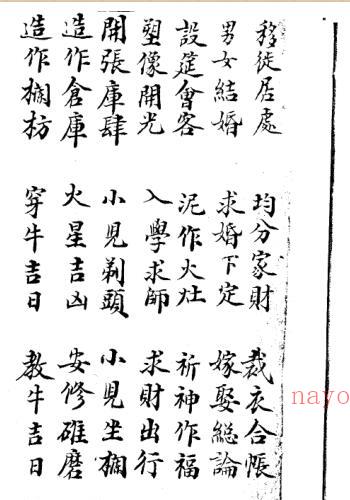 移徙居處 均分家財 裁衣合帳
男女結婚 求婚下定 嫁娶総論
設筵會客 泥作火灶 祈神作福
塑像開光 入學求師 求財出行
開張庫肆 小児剃頭 小児坐欄
造作倉庫 火星吉凶 安修碓磨
造作欄枋 穿牛吉日 教牛吉日
nayo